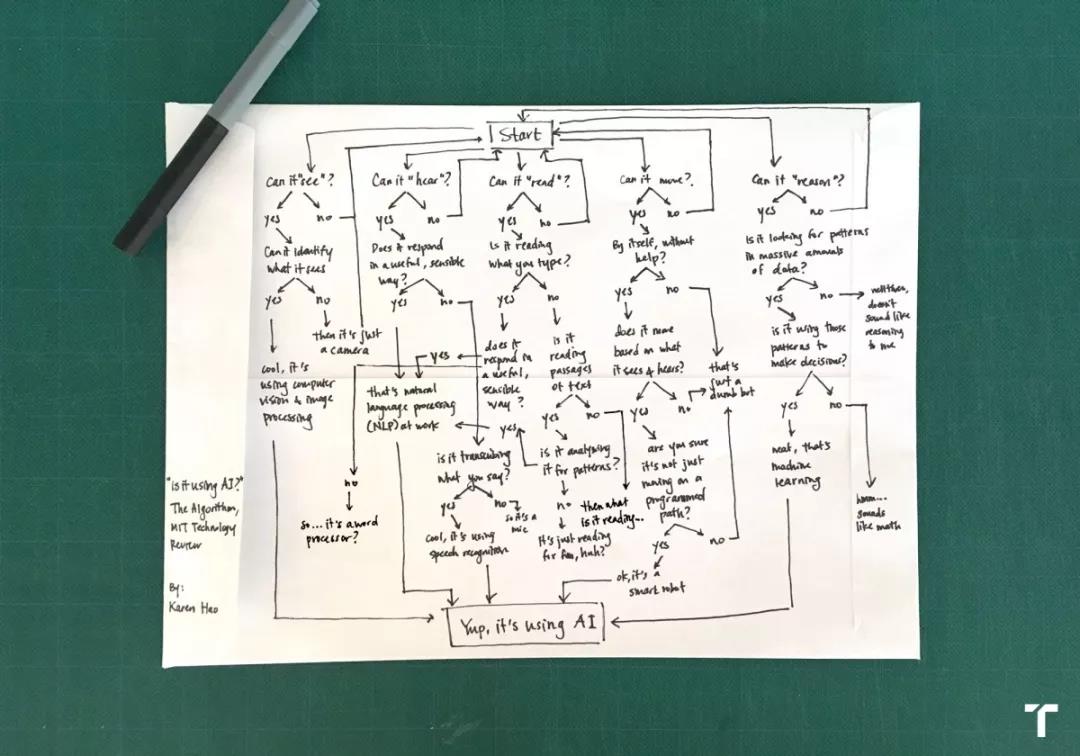 Start
Can it "see"?
yes
no
Can it identify
what it sees
yes
no
then it's just
a camera
cool, it's
using computer
vision & image
processing
Can it "hear"?
yes
no
Does it respond
in a useful, sensible
way?
yes
no
that's natural
language processing
(NLP) at work
is it transcribing
what you say?
yes
no
so it's a
mic
Cool, it's using
speech recognition
Can it "read"?
yes
no
Is it reading
what you type?
yes
no
does it
respond in
a useful,
sensible
way?
yes
no
so... it's a word
processor?
is it
reading
passages
of text
yes
no
is it analyzing
it for patterns?
yes
no
It's just reading
for fun, huh?
then what
is it reading...
Can it move?
yes
no
By itself, without
help?
yes
no
does it move
based on what
it sees & hears?
yes
no
that's
just a
dumb bot
are you sure
it's not just
moving on a
programmed
path?
yes
no
ok, it's a
smart robot
Can it "reason"?
yes
no
Is it looking for patterns
in massive amounts
of data?
yes
no
doesn't
sound like
reasoning
to me
is it using those
patterns to
make decisions?
yes
no
neat, that's
machine
learning
hmm...
sounds
like math
Yup, it's using AI
"is it using AI?"
The Algorithm,
MIT Technology
Review
By:
Karen Hao